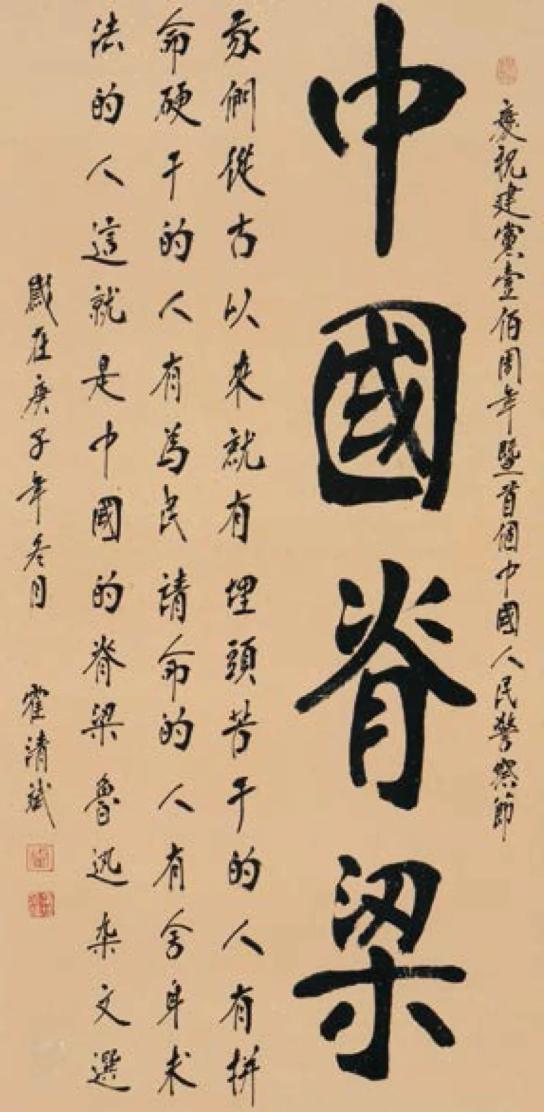 慶祝建黨壹佰周年暨首個中國人民警察節
中國脊梁
我們從古以來就有埋頭苦干的人有拼
命硬干的人有為民請命的人有舍身求
法的人這就是中國的脊梁魯迅杂文選
歲在庚子年冬月 霍清斌